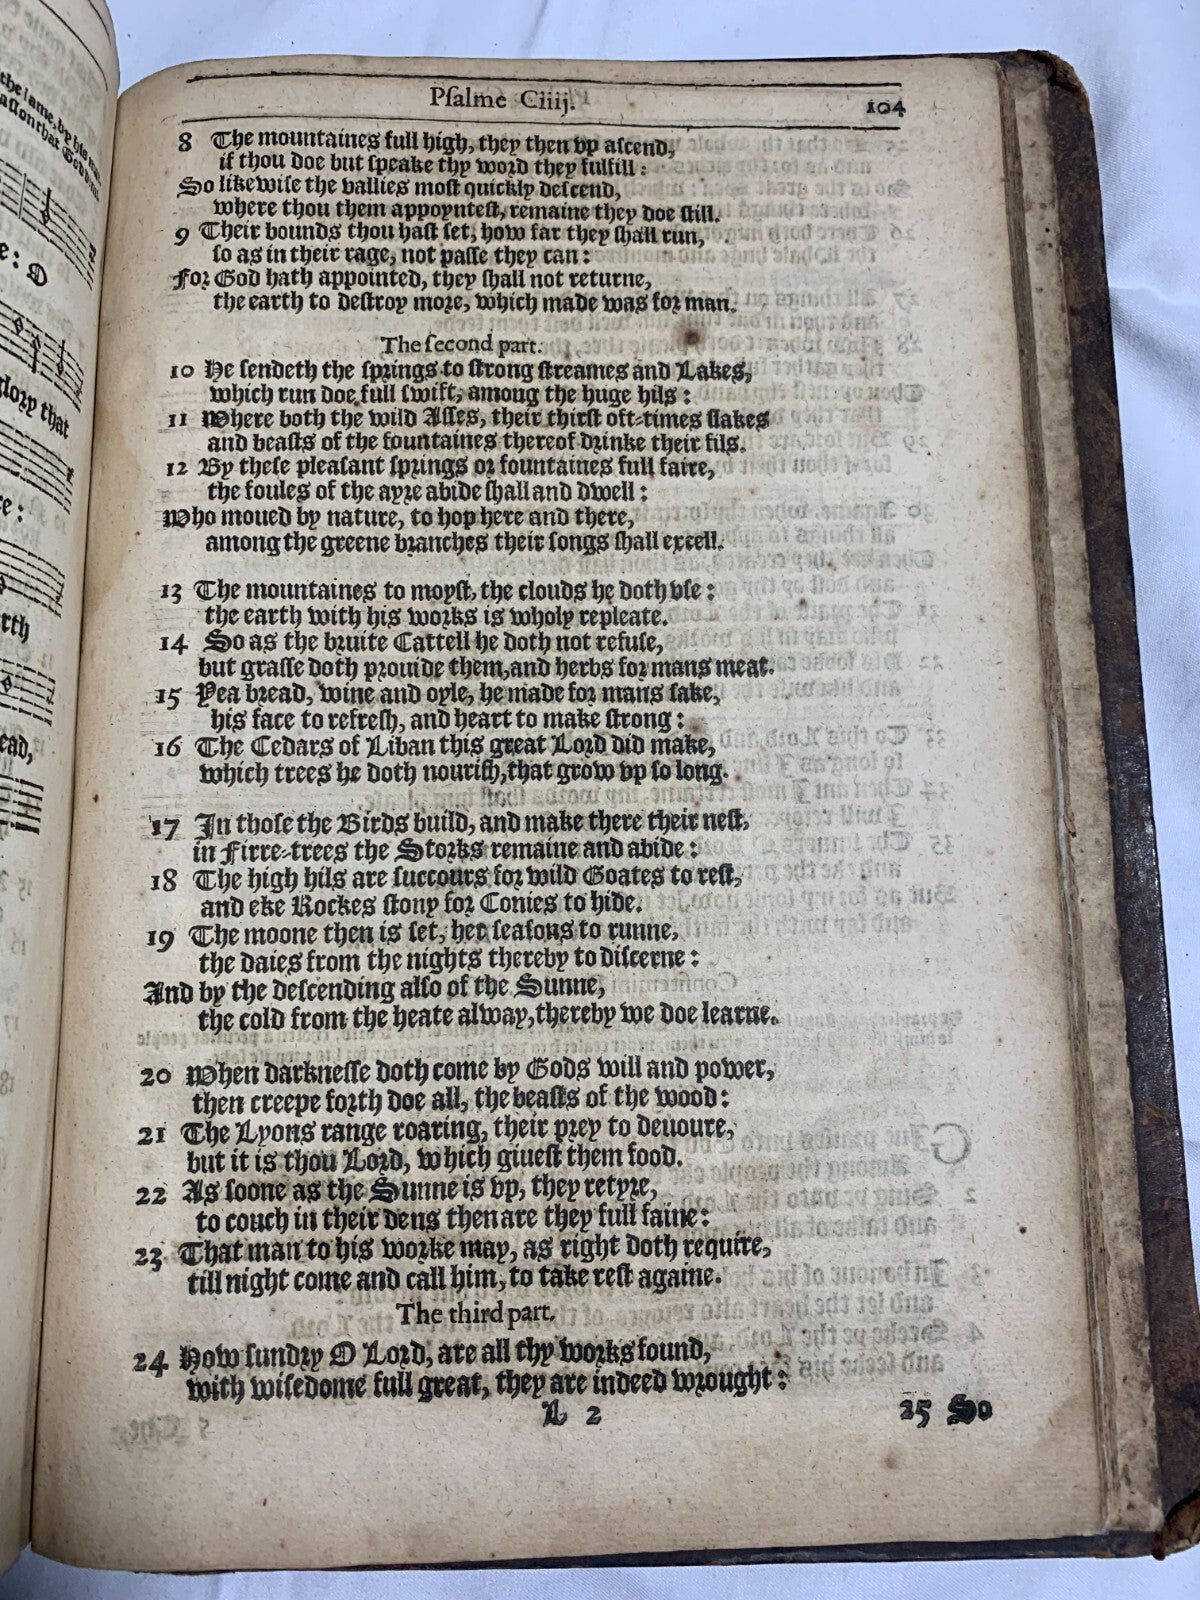 Psalme Ciiij.
104
8 The mountaines full high, they then vp ascend,
if thou doe but speake thy word they fulfill:
So likewise the vallies most quickly descend,
where thou them appoyntest, remaine they doe still.
9 Their bounds thou hast set, how far they shall run,
so as in their rage, not passe they can:
For God hath appointed, they shall not returne,
the earth to destroy more, which made was for man.
The second part.
10 He sendeth the springs to strong streames and Lakes,
which run doe full swift, among the huge hils:
11 Where both the wild Asses, their thirst oft-times slakes
and beasts of the fountaines thereof drinke their fils.
12 By these pleasant springs or fountaines full faire,
the foules of the ayre abide shall and dwell:
Who moued by nature, to hop here and there,
among the greene branches their songs shall excell.
13 The mountaines to moyst, the clouds he doth vse:
the earth with his works is wholy repleate.
14 So as the bruite Cattell he doth not refuse,
but grasse doth prouide them, and herbs for mans meat.
15 Yea bread, wine and oyle, he made for mans sake,
his face to refresh, and heart to make strong:
16 The Cedars of Liban this great Lord did make,
which trees he doth nourish, that grow vp so long.
17 In those the Birds build, and make there their nest,
in Firre-trees the Storks remaine and abide:
18 The high hils are succours for wild Goates to rest,
and eke Rockes stony for Conies to hide.
19 The moone then is set, her seasons to runne,
the daies from the nights thereby to discerne:
And by the descending also of the Sunne,
the cold from the heate alway, thereby we doe learne.
20 When darknesse doth come by Gods will and power,
then creepe forth doe all, the beasts of the wood:
21 The Lyons range roaring, their prey to deuoure,
but it is thou Lord, which giuest them food.
22 As soone as the Sunne is vp, they retyre,
to couch in their dens then are they full faine:
23 That man to his worke may, as right doth require,
till night come and call him, to take rest againe.
The third part.
24 How sundry O Lord, are all thy works found,
with wisedome full great, they are indeed wrought:
L 2
25 So